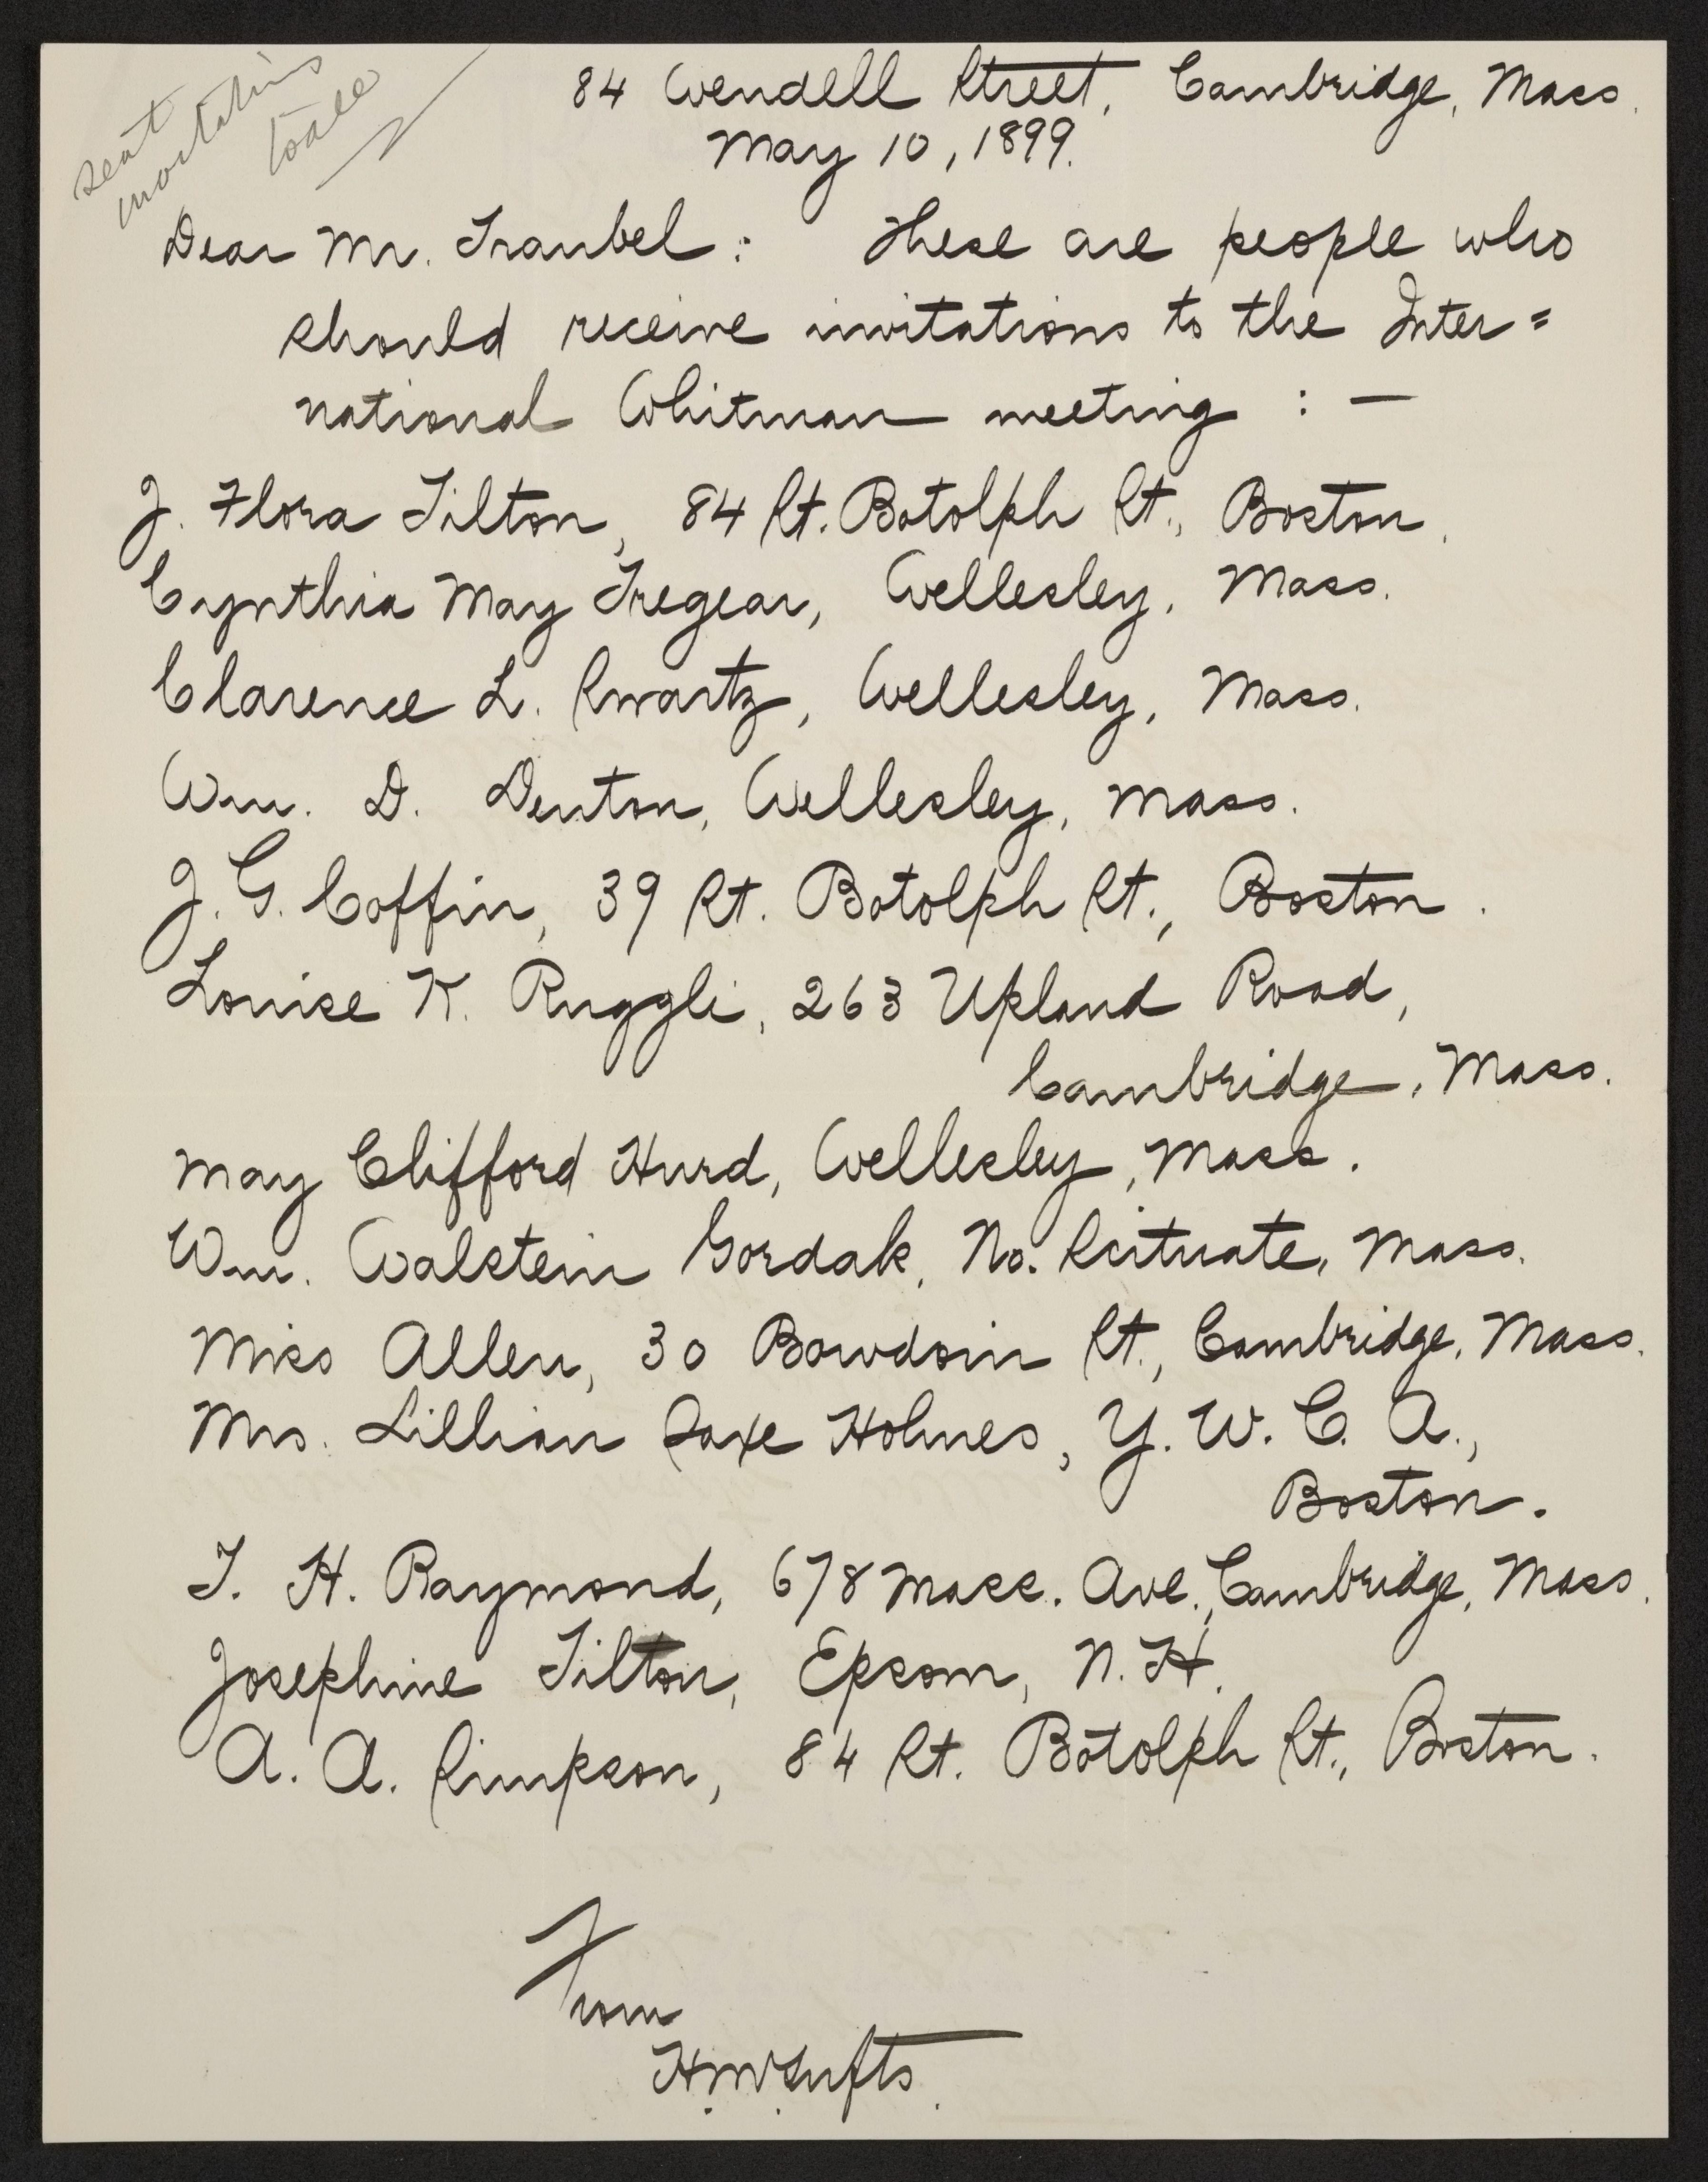 sent
invitations
to all
84 Wendell Street, Cambridge, Mass.
May 10, 1899.
Dear Mr. Traubel: These are people who
should receive invitations to the Inter=
national Whitman meeting : —
J. Flora Tilton, 84 St. Botolph St., Boston.
Cynthia May Tregear, Wellesley, Mass.
Clarence L. Swartz, Wellesley, Mass.
Wm. D. Denton, Wellesley, Mass.
J. G. Coffin, 39 St. Botolph St., Boston.
Louise K. Ruggli, 263 Upland Road,
Cambridge, Mass.
May Clifford Hurd, Wellesley, Mass.
Wm. Walstein Gordak, No. Scituate, Mass.
Miss Allen, 30 Bowdoin St., Cambridge, Mass.
Mrs. Lillian Saxe Holmes, Y. W. C. A.,
Boston.
T. H. Raymond, 678 Mass. Ave., Cambridge, Mass.
Josephine Tilton, Epsom, N. H.
A. A. Simpson, 84 St. Botolph St., Boston.
From
H. W. Tufts.